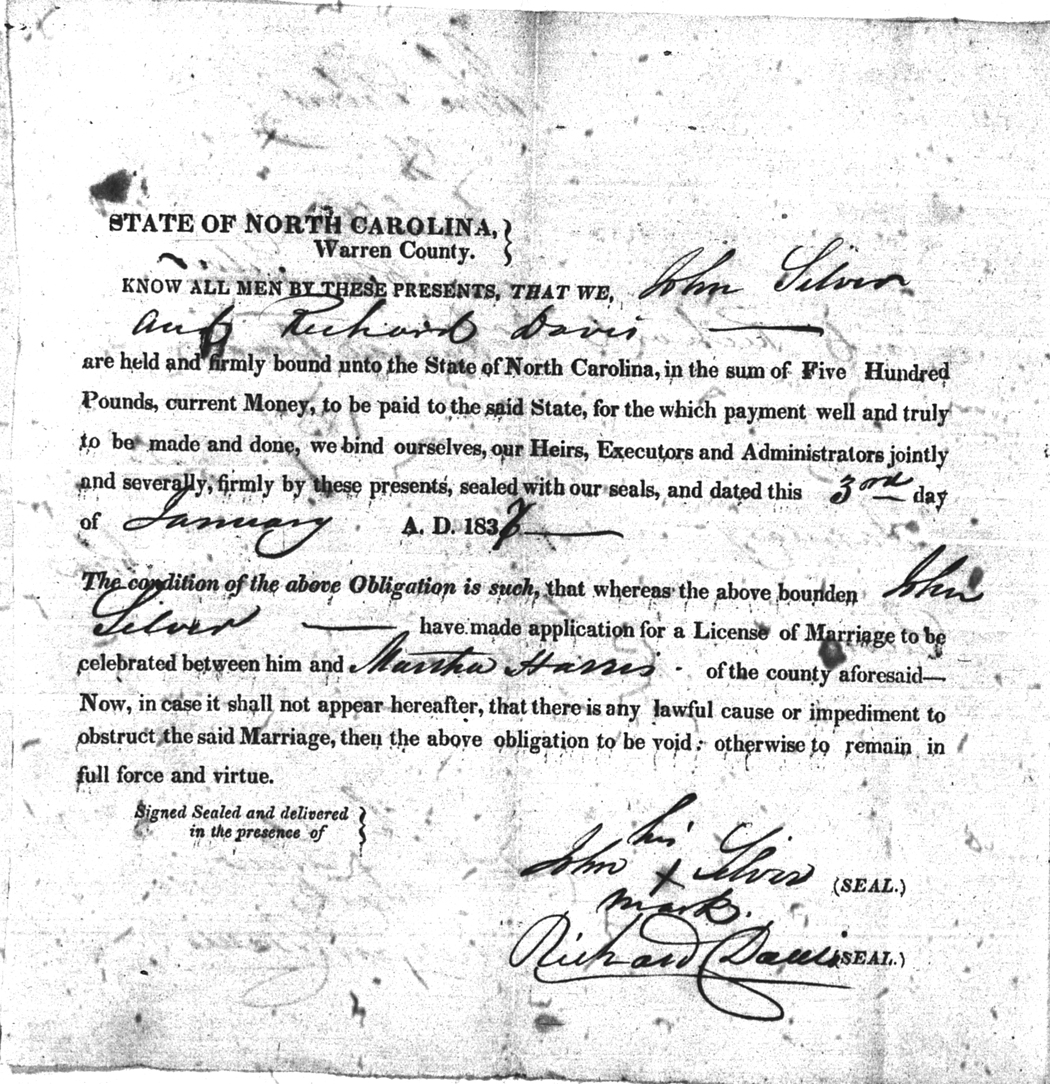 STATE OF NORTH CAROLINA,
Warren County.
KNOW ALL MEN BY THESE PRESENTS, THAT WE, John Silver
and Richard Davis
are held and firmly bound unto the State of North Carolina, in the sum of Five Hundred
Pounds, current Money, to be paid to the said State, for the which payment well and truly
to be made and done, we bind ourselves, our Heirs, Executors and Administrators jointly
and severally, firmly by these presents, sealed with our seals, and dated this 3rd day
of January A. D. 183
The condition of the above Obligation is such, that whereas the above bounden John
Silver have made application for a License of Marriage to be
celebrated between him and Martha Harris of the county aforesaid—
Now, in case it shall not appear hereafter, that there is any lawful cause or impediment to
obstruct the said Marriage, then the above obligation to be void: otherwise to remain in
full force and virtue.
Signed Sealed and delivered
in the presence of
his
John X Silver (SEAL.)
mark.
Richard Davis (SEAL.)